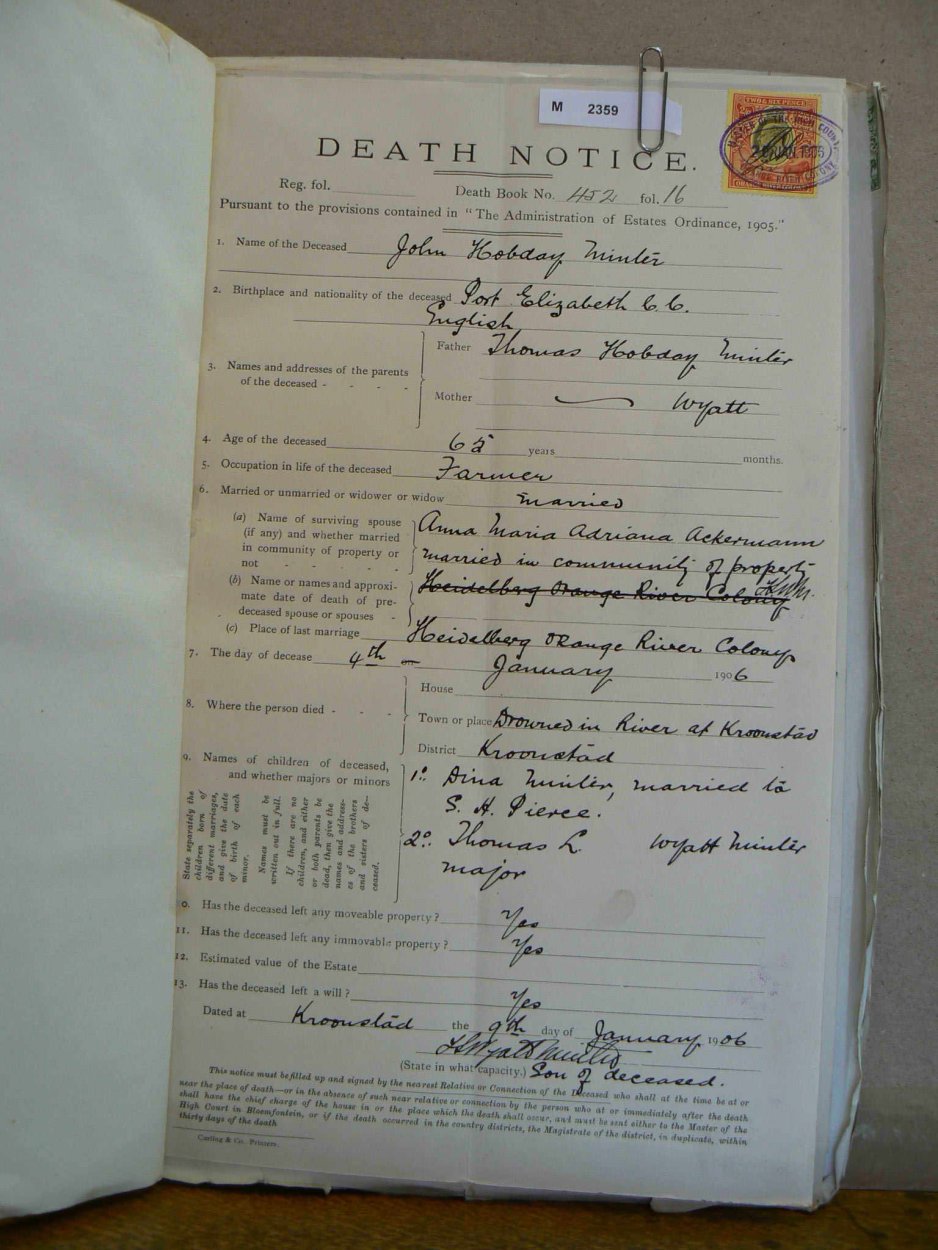 M 2359
TWO & SIX PENCE
MASTER OF THE HIGH COURT
ORANGE RIVER COLONY
DEATH NOTICE.
Reg. fol. Death Book No. 452 fol. 16
Pursuant to the provisions contained in "The Administration of Estates Ordinance, 1905."
1. Name of the Deceased John Hobday Minter
2. Birthplace and nationality of the deceased Port Elizabeth C.C.
English
Father Thomas Hobday Minter
3. Names and addresses of the parents
of the deceased - - - -
Mother Wyatt
4. Age of the deceased 65 years months.
5. Occupation in life of the deceased Farmer
6. Married or unmarried or widower or widow married
(a) Name of surviving spouse
(if any) and whether married
in community of property or
not - - - - -
Anna Maria Adriana Ackermann
married in community of property
(b) Name or names and approxi-
mate date of death of pre-
deceased spouse or spouses -
Heidelberg Orange River Colony
(c) Place of last marriage Heidelberg Orange River Colony
7. The day of decease 4th January 1906
House
8. Where the person died - - -
Town or place Drowned in River at Kroonstad
District Kroonstad
9. Names of children of deceased,
and whether majors or minors
State separately the
children born of
different marriages,
and give the date
of birth of each
minor.
Names must be
written out in full.
If there are no
children, and either
or both parents be
dead, then give the
names and address-
es of the brothers
and sisters of de-
ceased.
1o. Dina Minter, married to
S. H. Pierce.
2o. Thomas L. Wyatt Minter
major
0. Has the deceased left any moveable property? Yes
11. Has the deceased left any immovable property? Yes
12. Estimated value of the Estate
13. Has the deceased left a will? Yes
Dated at Kroonstad the 9th day of January 1906
(State in what capacity.) Son of deceased.
This notice must be filled up and signed by the nearest Relative or Connection of the Deceased who shall at the time be at or
near the place of death—or in the absence of such near relative or connection by the person who at or immediately after the death
shall have the chief charge of the house in or the place which the death shall occur, and must be sent either to the Master of the
High Court in Bloemfontein, or if the death occurred in the country districts, the Magistrate of the district, in duplicate, within
thirty days of the death
Curling & Co. Printers.